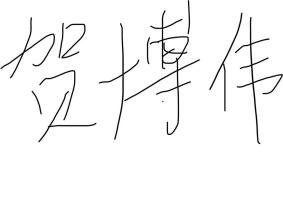 贺博伟